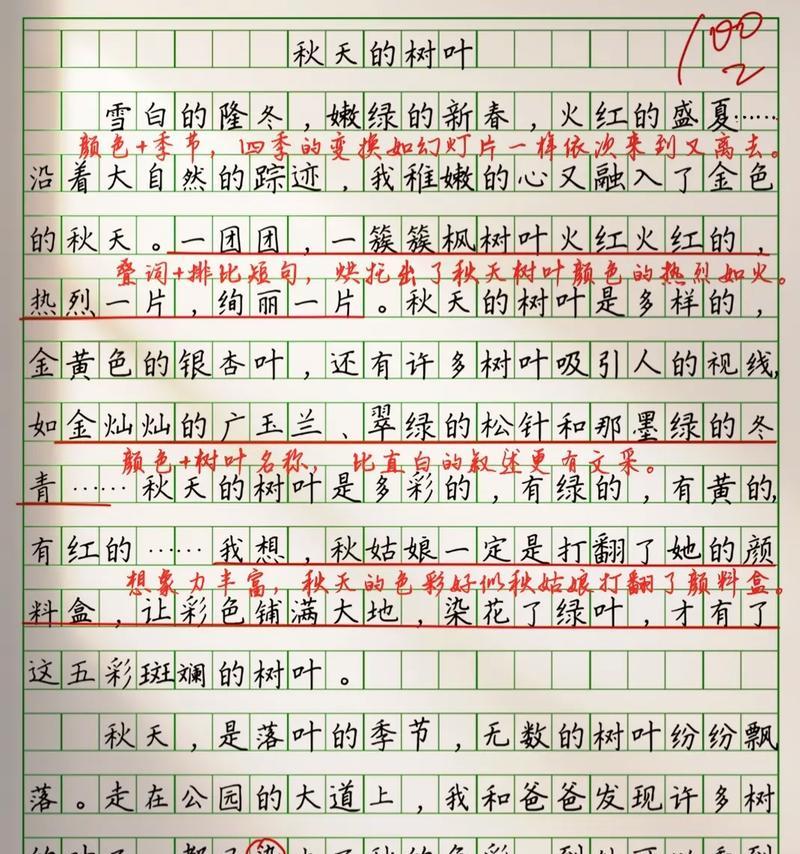 秋天的树叶
100
雪白的隆冬，嫩绿的新春，火红的盛夏……
颜色+季节，四季的变换如幻灯片一样依次来到又离去。
沿着大自然的踪迹，我稚嫩的心又融入了金色
的秋天。一团团，一簇簇枫树叶火红火红的，
叠词+排比短句，烘托出了秋天树叶颜色的热烈如火。
热烈一片，绚丽一片。秋天的树叶是多样的，
金黄色的银杏叶，还有许多树叶吸引人的视线，
如金灿灿的广玉兰、翠绿的松针和那墨绿的冬
颜色+树叶名称，比直白的叙述更有文采。
青……秋天的树叶是多彩的，有绿的，有黄的，
有红的……我想，秋姑娘一定是打翻了她的颜
想象力丰富，秋天的色彩好似秋姑娘打翻了颜料盒。
料盒，让彩色铺满大地，染花了绿叶，才有了
这五彩斑斓的树叶。
秋天，是落叶的季节，无数的树叶纷纷飘
落。走在公园的大道上，我和爸爸发现许多树